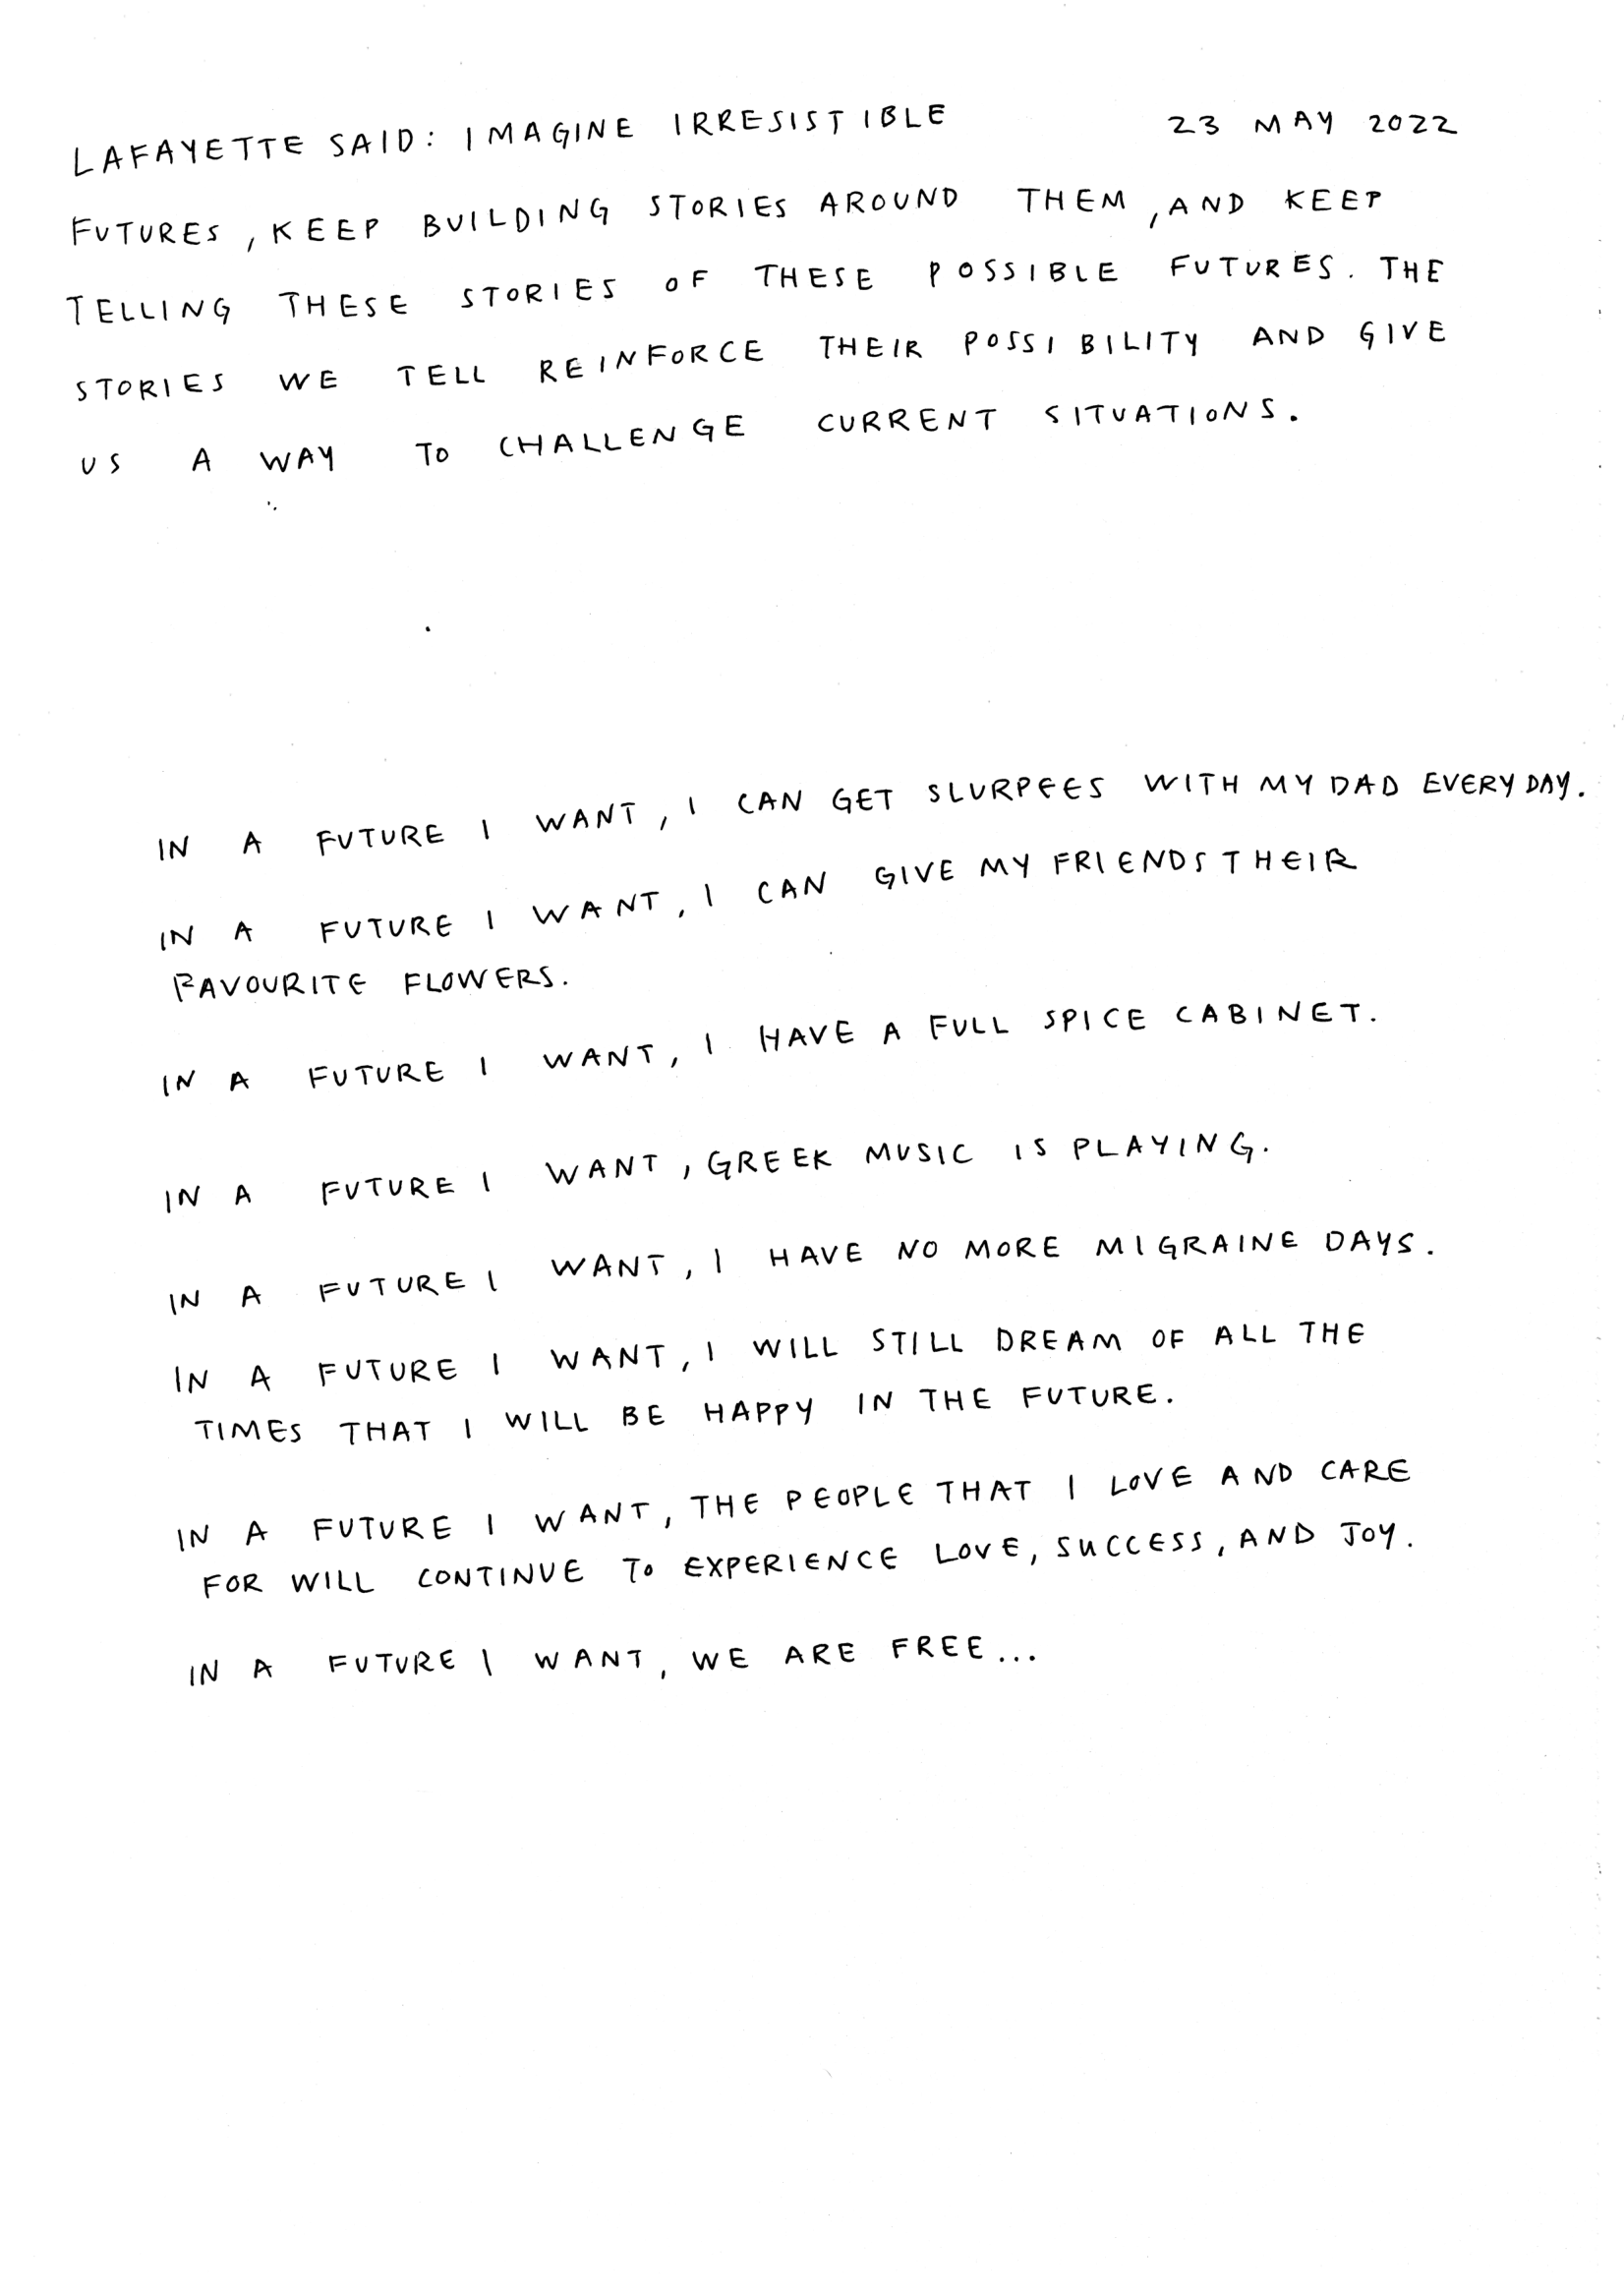 LAFAYETTE SAID: IMAGINE IRRESISTIBLE 23 MAY 2022
FUTURES, KEEP BUILDING STORIES AROUND THEM, AND KEEP
TELLING THESE STORIES OF THESE POSSIBLE FUTURES. THE
STORIES WE TELL REINFORCE THEIR POSSIBILITY AND GIVE
US A WAY TO CHALLENGE CURRENT SITUATIONS.
IN A FUTURE I WANT, I CAN GET SLURPEES WITH MY DAD EVERY DAY.
IN A FUTURE I WANT, I CAN GIVE MY FRIENDS THEIR
FAVOURITE FLOWERS.
IN A FUTURE I WANT, I HAVE A FULL SPICE CABINET.
IN A FUTURE I WANT, GREEK MUSIC IS PLAYING.
IN A FUTURE I WANT, I HAVE NO MORE MIGRAINE DAYS.
IN A FUTURE I WANT, I WILL STILL DREAM OF ALL THE
TIMES THAT I WILL BE HAPPY IN THE FUTURE.
IN A FUTURE I WANT, THE PEOPLE THAT I LOVE AND CARE
FOR WILL CONTINUE TO EXPERIENCE LOVE, SUCCESS, AND JOY.
IN A FUTURE I WANT, WE ARE FREE...